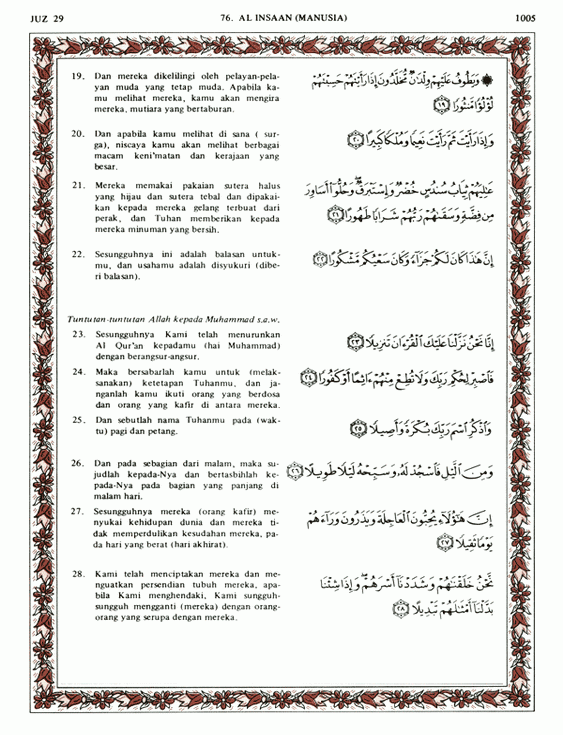 JUZ 29
76. AL INSAAN (MANUSIA)
1005
19. Dan mereka dikelilingi oleh pelayan-pela-
yan muda yang tetap muda. Apabila ka-
mu melihat mereka, kamu akan mengira
mereka, mutiara yang bertaburan.
۞ وَيَطُوفُ عَلَيْهِمْ وِلْدَانٌ مُّخَلَّدُونَ إِذَا رَأَيْتَهُمْ حَسِبْتَهُمْ
لُؤْلُؤًا مَّنثُورًا ﴿١٩﴾
20. Dan apabila kamu melihat di sana ( sur-
ga), niscaya kamu akan melihat berbagai
macam keni'matan dan kerajaan yang
besar.
وَإِذَا رَأَيْتَ ثَمَّ رَأَيْتَ نَعِيمًا وَمُلْكًا كَبِيرًا ﴿٢٠﴾
21. Mereka memakai pakaian sutera halus
yang hijau dan sutera tebal dan dipakai-
kan kepada mereka gelang terbuat dari
perak, dan Tuhan memberikan kepada
mereka minuman yang bersih.
عَٰلِيَهُمْ ثِيَابُ سُندُسٍ خُضْرٌ وَإِسْتَبْرَقٌ وَحُلُّوٓا۟ أَسَاوِرَ
مِن فِضَّةٍ وَسَقَىٰهُمْ رَبُّهُمْ شَرَابًا طَهُورًا ﴿٢١﴾
22. Sesungguhnya ini adalah balasan untuk-
mu, dan usahamu adalah disyukuri (dibe-
ri balasan).
إِنَّ هَٰذَا كَانَ لَكُمْ جَزَآءً وَكَانَ سَعْيُكُم مَّشْكُورًا ﴿٢٢﴾
Tuntutan-tuntutan Allah kepada Muhammad s.a.w.
23. Sesungguhnya Kami telah menurunkan
Al Qur'an kepadamu (hai Muhammad)
dengan berangsur-angsur.
إِنَّا نَحْنُ نَزَّلْنَا عَلَيْكَ الْقُرْءَانَ تَنزِيلًا ﴿٢٣﴾
24. Maka bersabarlah kamu untuk (melak-
sanakan) ketetapan Tuhanmu, dan ja-
nganlah kamu ikuti orang yang berdosa
dan orang yang kafir di antara mereka.
فَاصْبِرْ لِحُكْمِ رَبِّكَ وَلَا تُطِعْ مِنْهُمْ ءَاثِمًا أَوْ كَفُورًا ﴿٢٤﴾
25. Dan sebutlah nama Tuhanmu pada (wak-
tu) pagi dan petang.
وَاذْكُرِ اسْمَ رَبِّكَ بُكْرَةً وَأَصِيلًا ﴿٢٥﴾
26. Dan pada sebagian dari malam, maka su-
judlah kepada-Nya dan bertasbihlah ke-
pada-Nya pada bagian yang panjang di
malam hari.
وَمِنَ الَّيْلِ فَاسْجُدْ لَهُۥ وَسَبِّحْهُ لَيْلًا طَوِيلًا ﴿٢٦﴾
27. Sesungguhnya mereka (orang kafir) me-
nyukai kehidupan dunia dan mereka ti-
dak memperdulikan kesudahan mereka, pa-
da hari yang berat (hari akhirat).
إِنَّ هَٰٓؤُلَآءِ يُحِبُّونَ الْعَاجِلَةَ وَيَذَرُونَ وَرَآءَهُمْ
يَوْمًا ثَقِيلًا ﴿٢٧﴾
28. Kami telah menciptakan mereka dan me-
nguatkan persendian tubuh mereka, apa-
bila Kami menghendaki, Kami sungguh-
sungguh mengganti (mereka) dengan orang-
orang yang serupa dengan mereka.
نَّحْنُ خَلَقْنَٰهُمْ وَشَدَدْنَآ أَسْرَهُمْ وَإِذَا شِئْنَا
بَدَّلْنَآ أَمْثَٰلَهُمْ تَبْدِيلًا ﴿٢٨﴾